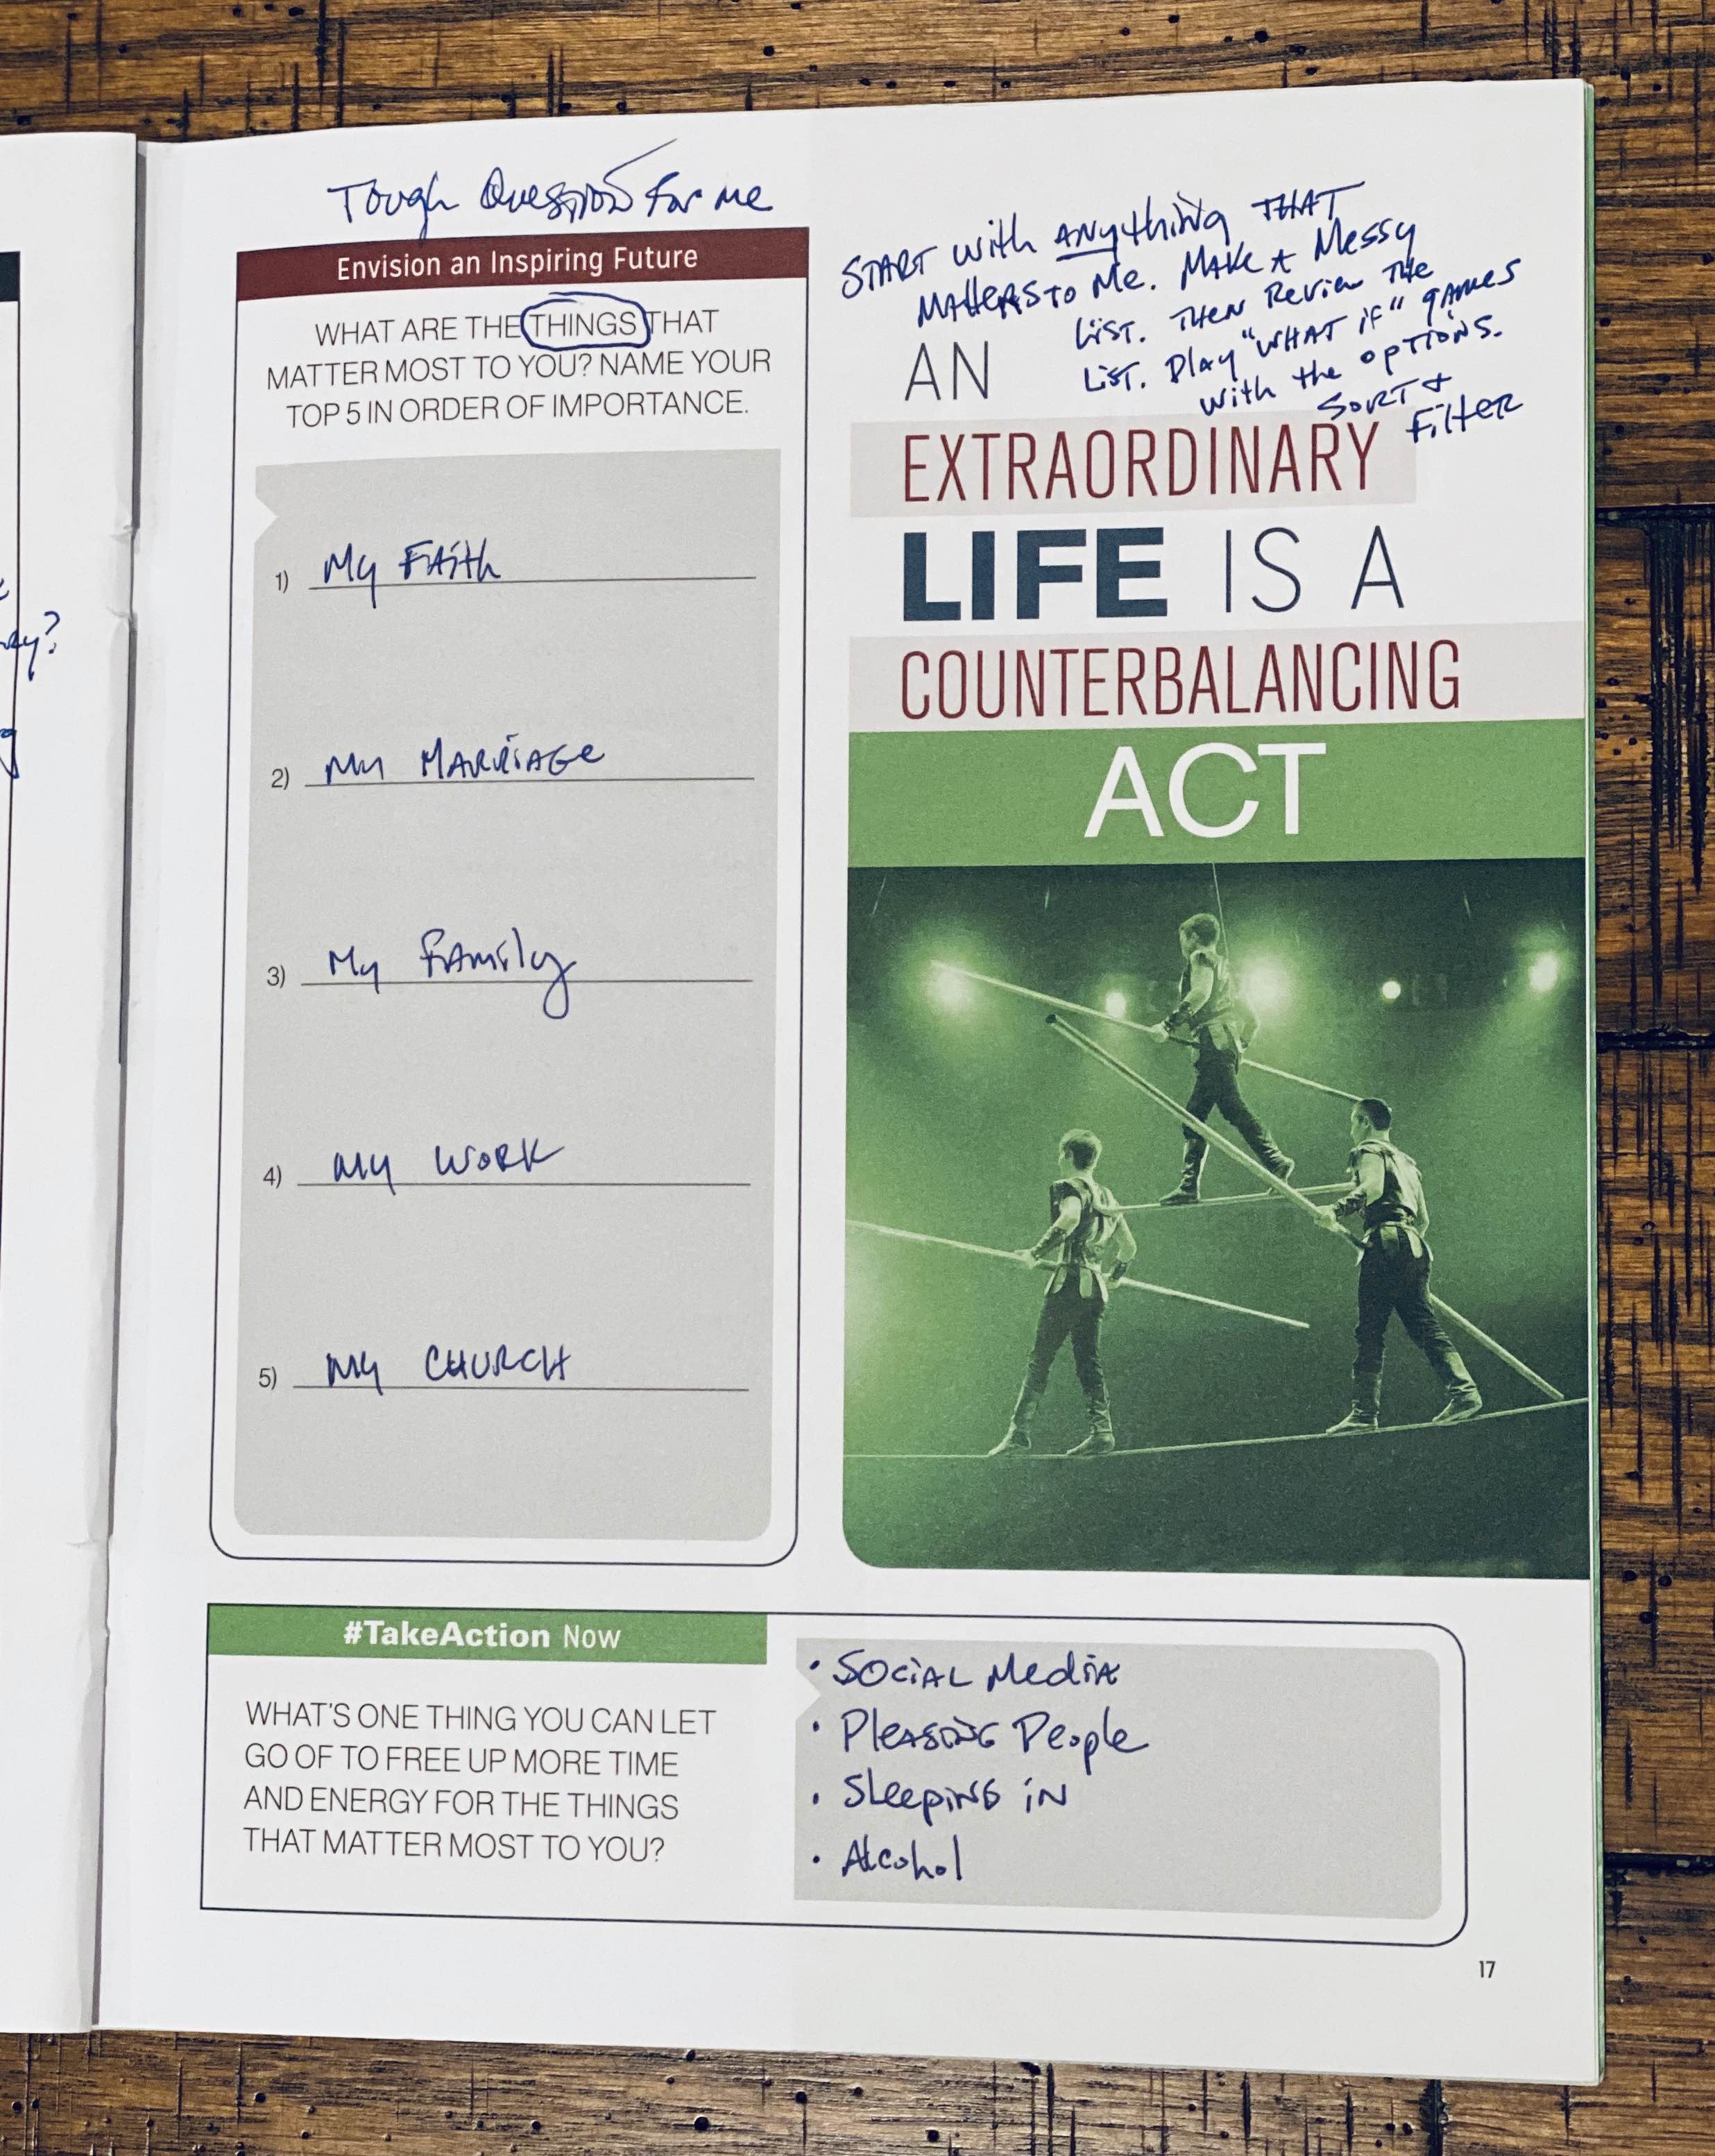 Tough Question for me
Envision an Inspiring Future
WHAT ARE THE THINGS THAT
MATTER MOST TO YOU? NAME YOUR
TOP 5 IN ORDER OF IMPORTANCE.
1) My FAith
2) My MARRiAGe
3) My FAmily
4) My WORK
5) My CHURCH
START with ANything THAT
MAtteRS to Me. MAke A Messy
LiST. THeN Review THe
LiST. Play "WHAT iF" gAMes
with the opTioNS.
SoRT &
FilteR
AN
EXTRAORDINARY
LIFE IS A
COUNTERBALANCING
ACT
#TakeAction Now
WHAT'S ONE THING YOU CAN LET
GO OF TO FREE UP MORE TIME
AND ENERGY FOR THE THINGS
THAT MATTER MOST TO YOU?
• SOCiAL MediA
• PleASiNG People
• SleepiNG iN
• Alcohol
17